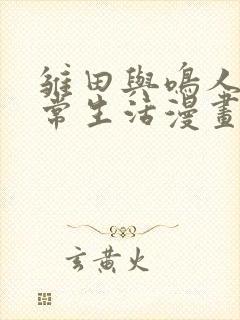 雛田與鳴人
常生活漫畫
玄黃火